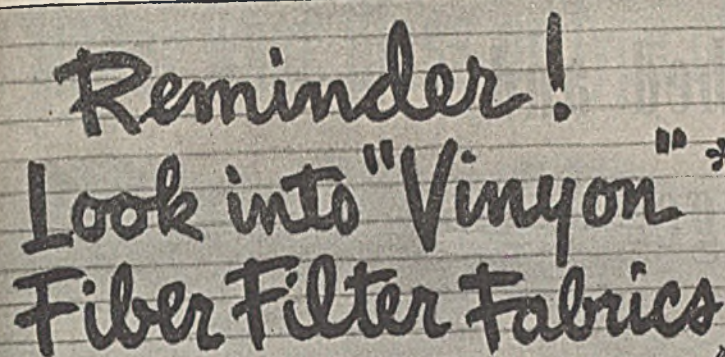 Reminder!
Look into "Vinyon"*
Fiber Filter Fabrics